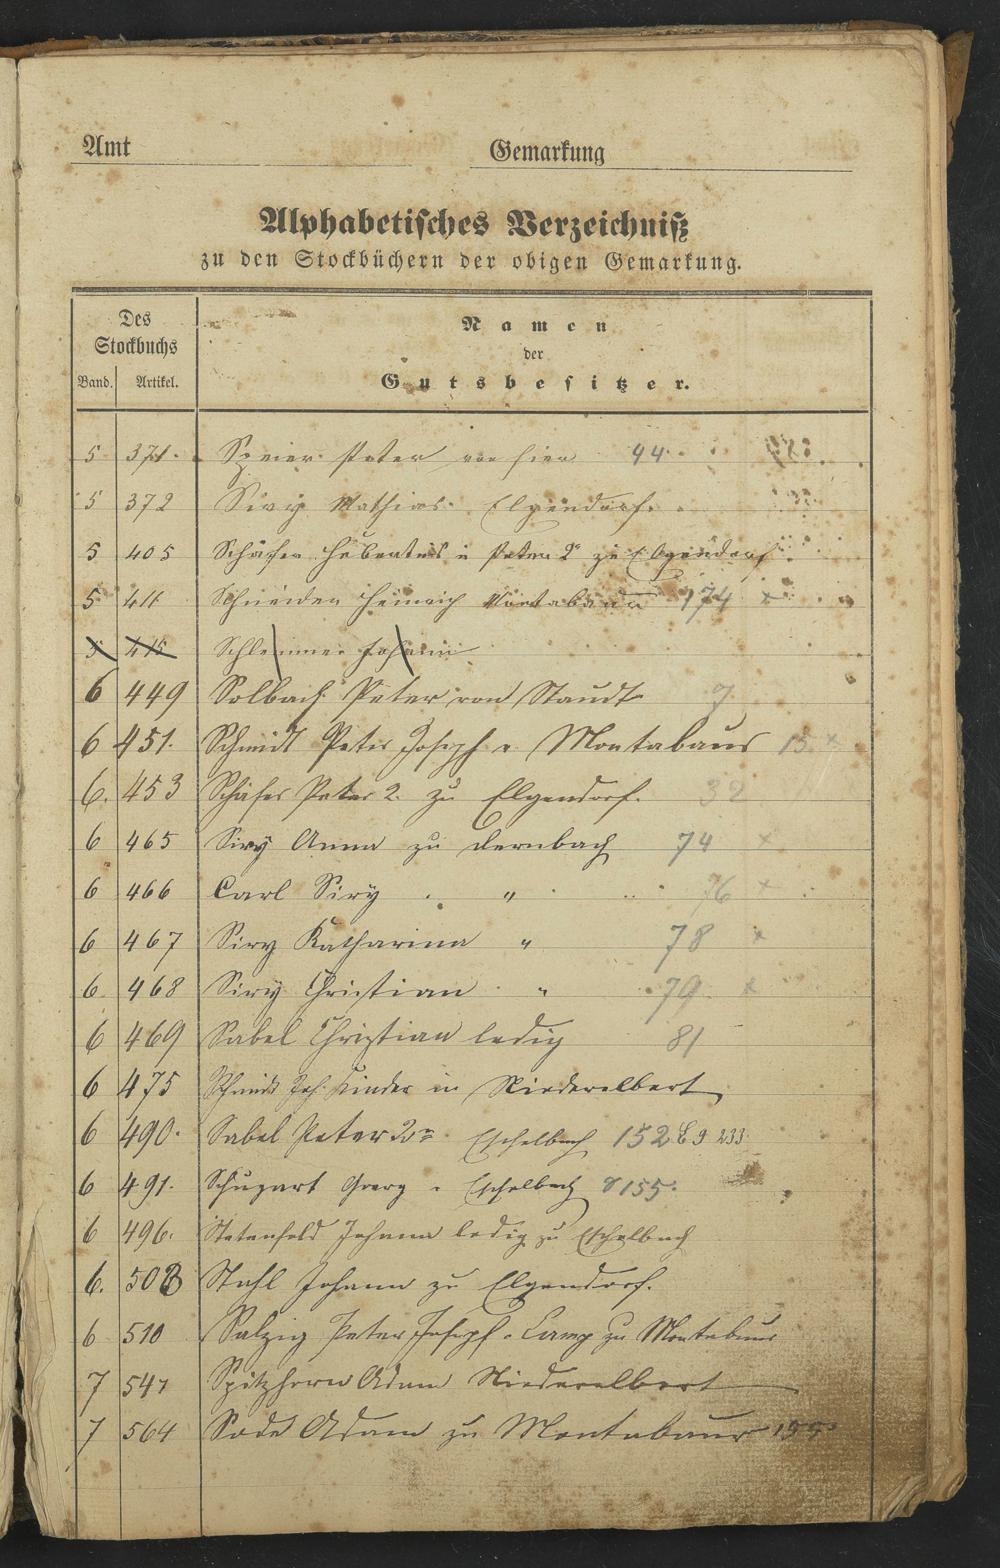 Amt Gemarkung
Alphabetisches Verzeichniß
zu den Stockbüchern der obigen Gemarkung.
Des
Stockbuchs
Namen
der
Gutsbesitzer.
Band. Artikel.
5 371. Speier Peter von hier 44
5 372 Siry Mathias Elgendorf.
5 405 Schäfer Hubertus u Peter 2r zu Elgendorf
5 411 Schneider Heinrich Montabaur 174 x
5 415 Schlemmer Johann
6 449 Solbach Peter von Staudt 7
6 451. Schmidt Peter Joseph v. Montabaur 15. x
6. 453 Schäfer Peter 2. zu Elgendorf. 32
6 465 Siry Anna zu Dernbach 74 x
6 466 Carl Siry " 76 x
6 467 Siry Katharina " 78 x
6 468 Siry Christian " 79 x
6 469 Sabel Christian ledig 81
6 475 Schmidt Joh. Kinder in Niederelbert
6 490. Sabel Peter 2r Eschelbach 152 B 9 233
6 491. Schugart Georg " Eschelbach 155.
6 496. Johann ledig zu Eschelbach
6. 508 Stahl Johann zu Elgendorf.
6 510 Salzig Peter Joseph zu Montabaur
7 547 Spitzhorn Adam Niederelbert
7 564 Sode Adam zu Montabaur